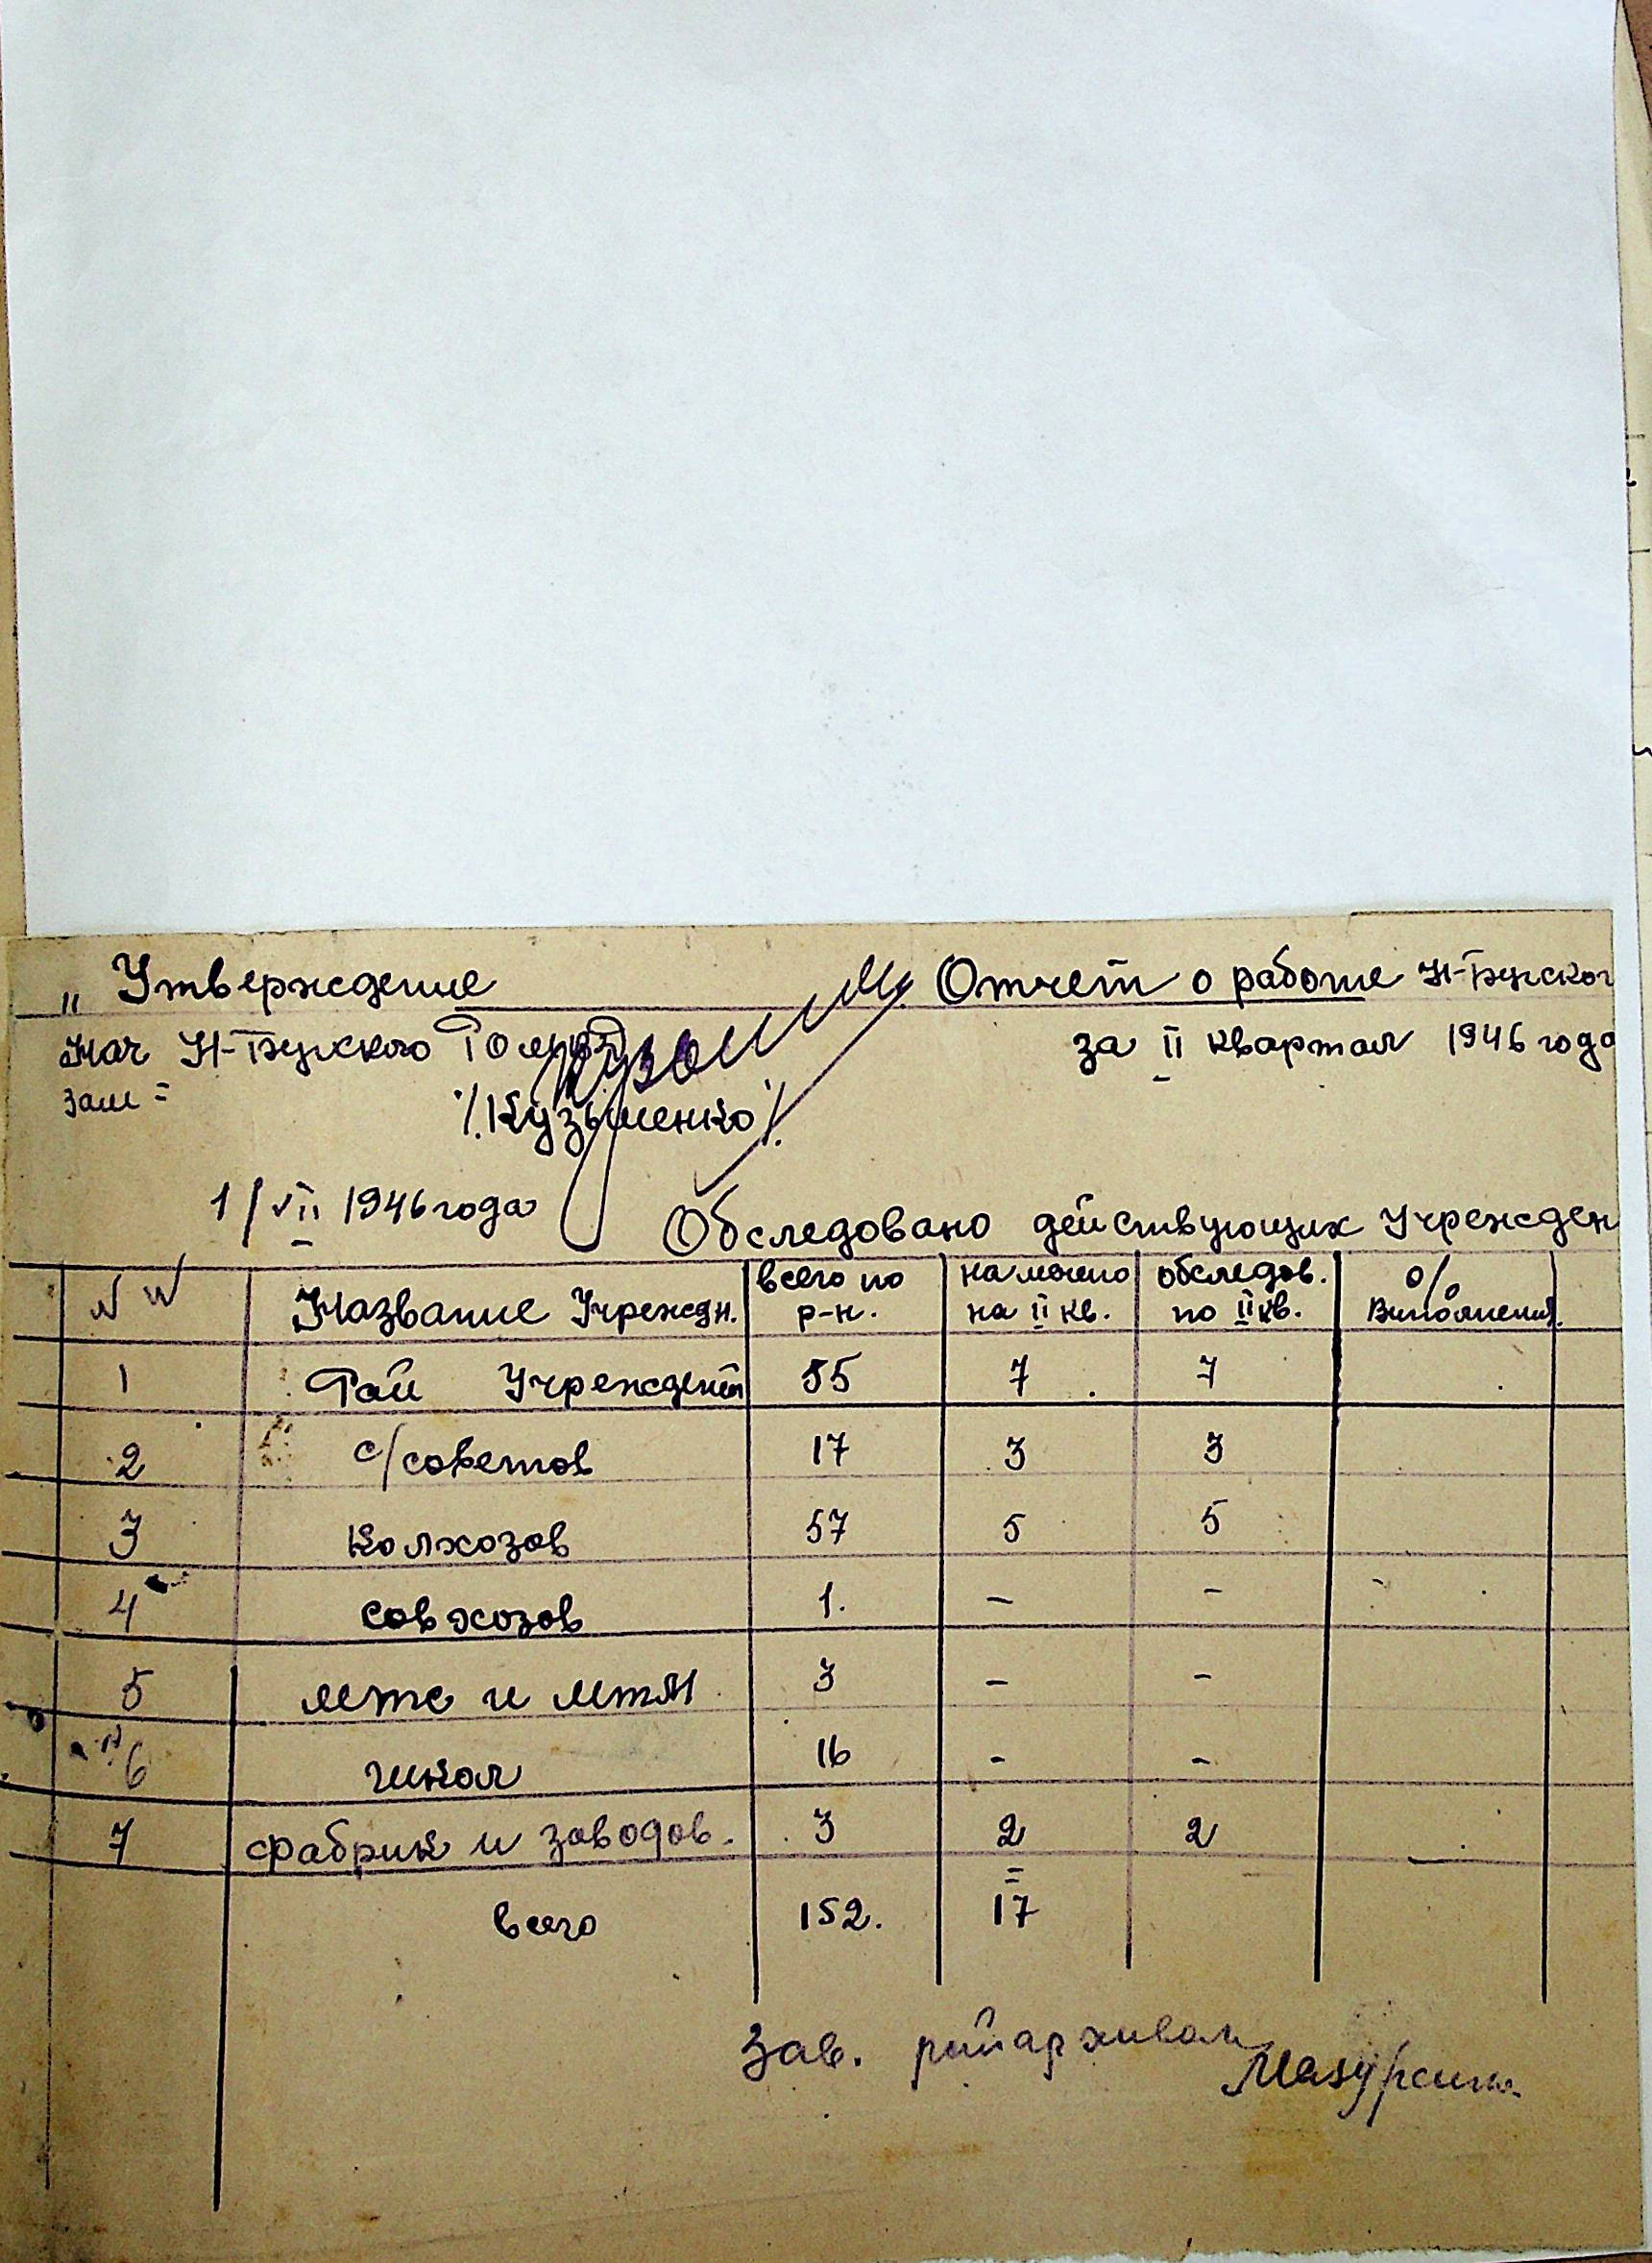 „ Утверждение
Отчет о работе Н-Бугског
Нач Н-Бугского
за II квартал 1946 года
зам =
/.Кузьменко/.
1/VII 1946 года
Обследовано действующих Учрежден
N N Название Учрежд. всего по р-н. намечено на II кв. обследов. по II кв. % Выполнения.
1 Рай Учрежден 55 7 7
2 с/советов 17 3 3
3 Колхозов 57 5 5
4 совхозов 1. – –
5 мтс и мтм 3 – –
6 школ 16 – –
7 фабрик и заводов. 3 2 2
=
всего 152. 17
Зав. райархивом